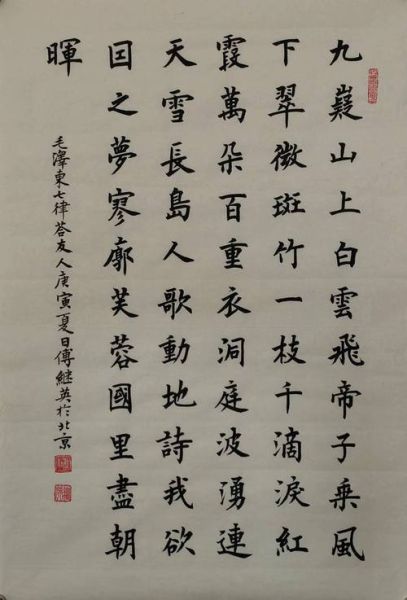 九嶷山上白雲飛帝子乘風
下翠微斑竹一枝千滴淚紅
霞萬朵百重衣洞庭波湧連
天雪長島人歌動地詩我欲
囙之夢寥廓芙蓉國里盡朝
暉
毛澤東七律荅友人庚寅夏日傅継英於北京